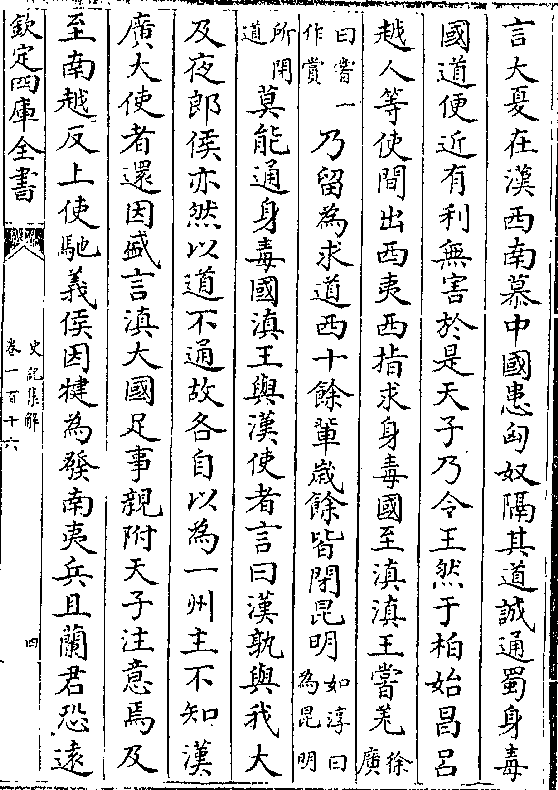 言大夏在漢西南慕中國患匈奴隔其道誠通蜀身毒
國道便近有利無害於是天子乃令王然于柏始昌呂
越人等使間出西夷西指求身毒國至滇滇王嘗羌徐廣
曰嘗一作賞乃留為求道西十餘輩歲餘皆閉昆明如淳曰為昆明
所閉道莫能通身毒國滇王與漢使者言曰漢孰與我大
及夜郎侯亦然以道不通故各自以為一州主不知漢
廣大使者還因盛言滇大國足事親附天子注意焉及
至南越反上使馳義侯因犍為發南夷兵且蘭君恐遠
欽定四庫全書
史記集解
卷一百十六
四